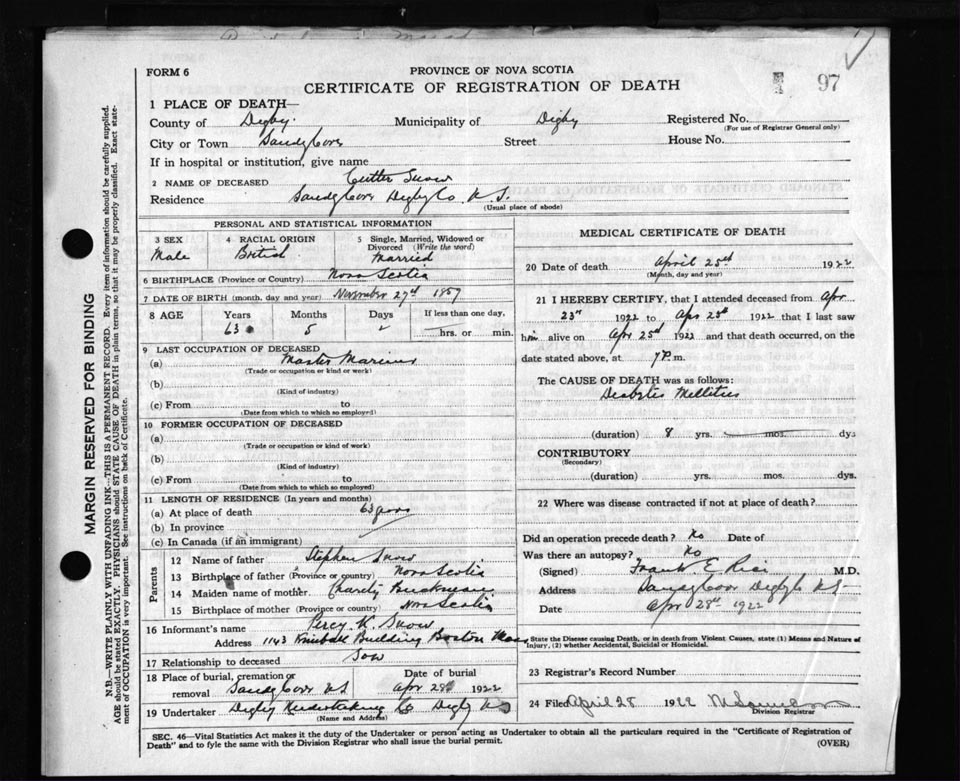 FORM 6
PROVINCE OF NOVA SCOTIA
CERTIFICATE OF REGISTRATION OF DEATH
97
1 PLACE OF DEATH—
County of Digby. Municipality of Digby Registered No.
(For use of Registrar General only)
City or Town Sandy Cove Street House No.
If in hospital or institution, give name
2 NAME OF DECEASED Cutter Snow
Residence Sandy Cove Digby Co N.S.
(Usual place of abode)
PERSONAL AND STATISTICAL INFORMATION
3 SEX Male
4 RACIAL ORIGIN British
5 Single, Married, Widowed or Divorced (Write the word) Married
6 BIRTHPLACE (Province or Country) Nova Scotia
7 DATE OF BIRTH (month, day and year) November 27th 1859
8 AGE Years Months Days If less than one day,
63 5 hrs. or min.
9 LAST OCCUPATION OF DECEASED
(a) Master Mariner
(Trade or occupation or kind or work)
(b)
(Kind of industry)
(c) From to
(Date from which to which so employed)
10 FORMER OCCUPATION OF DECEASED
(a)
(Trade or occupation or kind of work)
(b)
(Kind of industry)
(c) From to
(Date from which to which so employed)
11 LENGTH OF RESIDENCE (In years and months)
(a) At place of death 63 years
(b) In province
(c) In Canada (if an immigrant)
Parents
12 Name of father Stephen Snow
13 Birthplace of father (Province or country) Nova Scotia
14 Maiden name of mother Charity
15 Birthplace of mother (Province or country) Nova Scotia
16 Informant's name Percy K. Snow
Address 1143 Kimball Building Boston Mass
17 Relationship to deceased Son
18 Place of burial, cremation or removal Sandy Cove N S
Date of burial Apr 28th 1922
19 Undertaker Digby Undertaking Co Digby N S
(Name and Address)
MEDICAL CERTIFICATE OF DEATH
20 Date of death April 25th 1922
(Month, day and year)
21 I HEREBY CERTIFY, that I attended deceased from Apr
23rd 1922 to Apr 25th 1922 that I last saw
him alive on Apr 25th 1922 and that death occurred, on the
date stated above, at 7 P.m.
The CAUSE OF DEATH was as follows:
Diabetes Mellitus
(duration) 8 yrs. mos. dys
CONTRIBUTORY
(Secondary)
(duration) yrs. mos. dys.
22 Where was disease contracted if not at place of death?
Did an operation precede death? No Date of
Was there an autopsy? No
(Signed) Frank E Rice M.D.
Address Sandy Cove Digby Co N S
Date Apr 28th 1922
State the Disease causing Death, or in death from Violent Causes, state (1) Means and Nature of
Injury, (2) whether Accidental, Suicidal or Homicidal.
23 Registrar's Record Number
24 Filed April 28 1922
Division Registrar
SEC. 46—Vital Statistics Act makes it the duty of the Undertaker or person acting as Undertaker to obtain all the particulars required in the "Certificate of Registration of
Death" and to fyle the same with the Division Registrar who shall issue the burial permit.
(OVER)
MARGIN RESERVED FOR BINDING
N.B.—WRITE PLAINLY WITH UNFADING INK—THIS IS A PERMANENT RECORD. Every item of information should be carefully supplied.
AGE should be stated EXACTLY. PHYSICIANS should STATE CAUSE OF DEATH in plain terms, so that it may be properly classified. Exact state-
ment of OCCUPATION is very important. See instructions on back of Certificate.